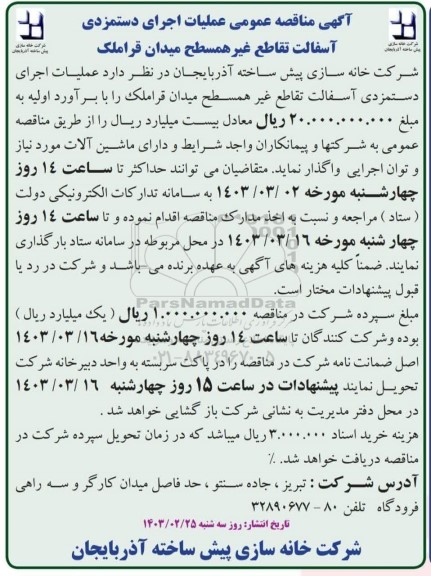 آگهی مناقصه عمومی عملیات اجرای دستمزدی
آسفالت تقاطع غیرهمسطح میدان قراملک
شرکت خانه سازی
پیش ساخته آذربایجان
شرکت خانه سازی
پیش ساخته آذربایجان
شرکت خانه سازی پیش ساخته آذربایجان در نظر دارد عملیات اجرای
دستمزدی آسفالت تقاطع غیر همسطح میدان قراملک را با برآورد اولیه به
مبلغ ۲۰.۰۰۰.۰۰۰.۰۰۰ ریال معادل بیست میلیارد ریال را از طریق مناقصه
عمومی به شرکتها و پیمانکاران واجد شرایط و دارای ماشین آلات مورد نیاز
و توان اجرایی واگذار نماید. متقاضیان می توانند حداکثر تا ساعت ۱۴ روز
چهارشنبه مورخه ۰۲ /۰۳/ ۱۴۰۳ به سامانه تدارکات الکترونیکی دولت
( ستاد ) مراجعه و نسبت به اخذ مدارک مناقصه اقدام نموده و تا ساعت ۱۴ روز
چهار شنبه مورخه ۰۳/۱۶/ ۱۴۰۳ در محل مربوطه در سامانه ستاد بارگذاری
نمایند. ضمناً کلیه هزینه های آگهی به عهده برنده می باشد و شرکت در رد یا
قبول پیشنهادات مختار است.
مبلغ سپرده شرکت در مناقصه ۱.۰۰۰.۰۰۰.۰۰۰ ریال ( یک میلیارد ریال )
بوده وشرکت کنندگان تا ساعت ۱۴ روز چهارشنبه مورخه۱۶/ ۰۳ /۱۴۰۳
اصل ضمانت نامه شرکت در مناقصه را در پاکت سربسته به واحد دبیرخانه شرکت
تحویل نمایند پیشنهادات در ساعت ۱۵ روز چهارشنبه ۱۶ /۰۳ /۱۴۰۳
در محل دفتر مدیریت به نشانی شرکت باز گشایی خواهد شد .
هزینه خرید اسناد ۳.۰۰۰.۰۰۰ ریال میباشد که در زمان تحویل سپرده شرکت در
مناقصه دریافت خواهد شد. ٪
آدرس شرکت : تبریز ، جاده سنتو ، حد فاصل میدان کارگر و سه راهی
فرودگاه تلفن ۸۰ - ۳۲۸۹۰۶۷۷
تاریخ انتشار: روز سه شنبه ۱۴۰۳/۰۲/۲۵
شرکت خانه سازی پیش ساخته آذربایجان
ParsNamadData
۰۲۱-۸۸۳۴۹۶۷۰-۵